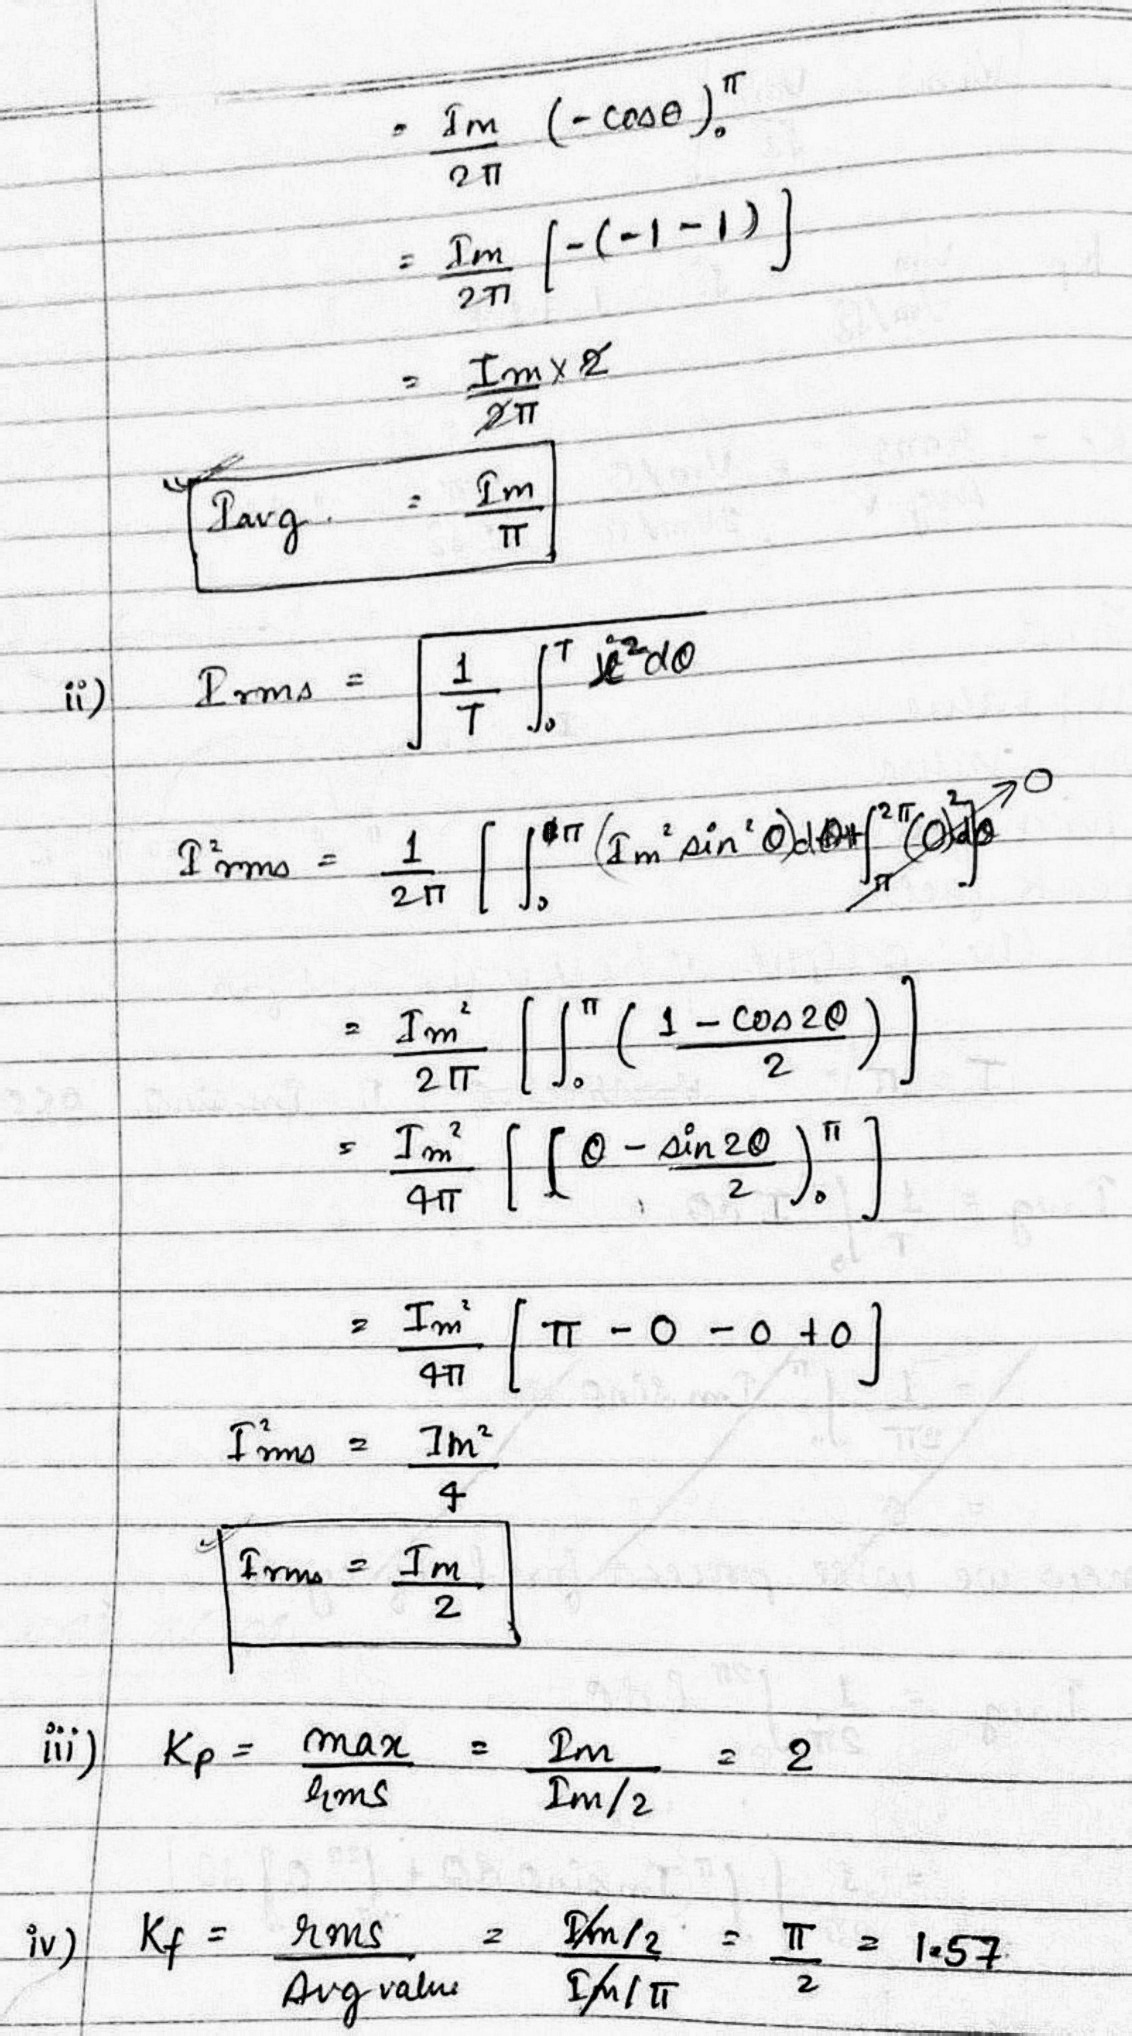 = Im/2π (-cosθ)₀^π
= Im/2π [-(-1-1)]
= Im×2/2π
Iavg. = Im/π
ii) Irms = √(1/T ∫₀^T i²dθ)
I²rms = 1/2π [∫₀^π (Im² sin²θ)dθ + ∫π^2π (0)²dθ] → 0
= Im²/2π [∫₀^π (1-cos2θ/2)]
= Im²/4π [[θ - sin2θ/2)₀^π]
= Im²/4π [π - 0 - 0 + 0]
I²rms = Im²/4
Irms = Im/2
iii) Kp = max/rms = Im/Im/2 = 2
iv) Kf = rms/Avg value = Im/2/Im/π = π/2 = 1.57